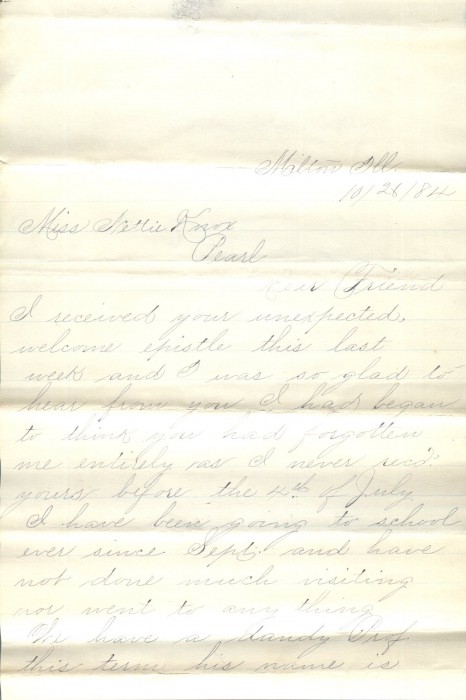 Milton Ill.
10/28/84
Miss Nettie Knox
Pearl
Dear Friend
I received your unexpected,
welcome epistle this last
week and I was so glad to
hear from you I had began
to think you had forgotten
me entirely as I never rec'd
yours before the 4th of July
I have been going to school
ever since Sept. and have
not done much visiting
nor went to any thing
We have a dandy Prof
this term his name is